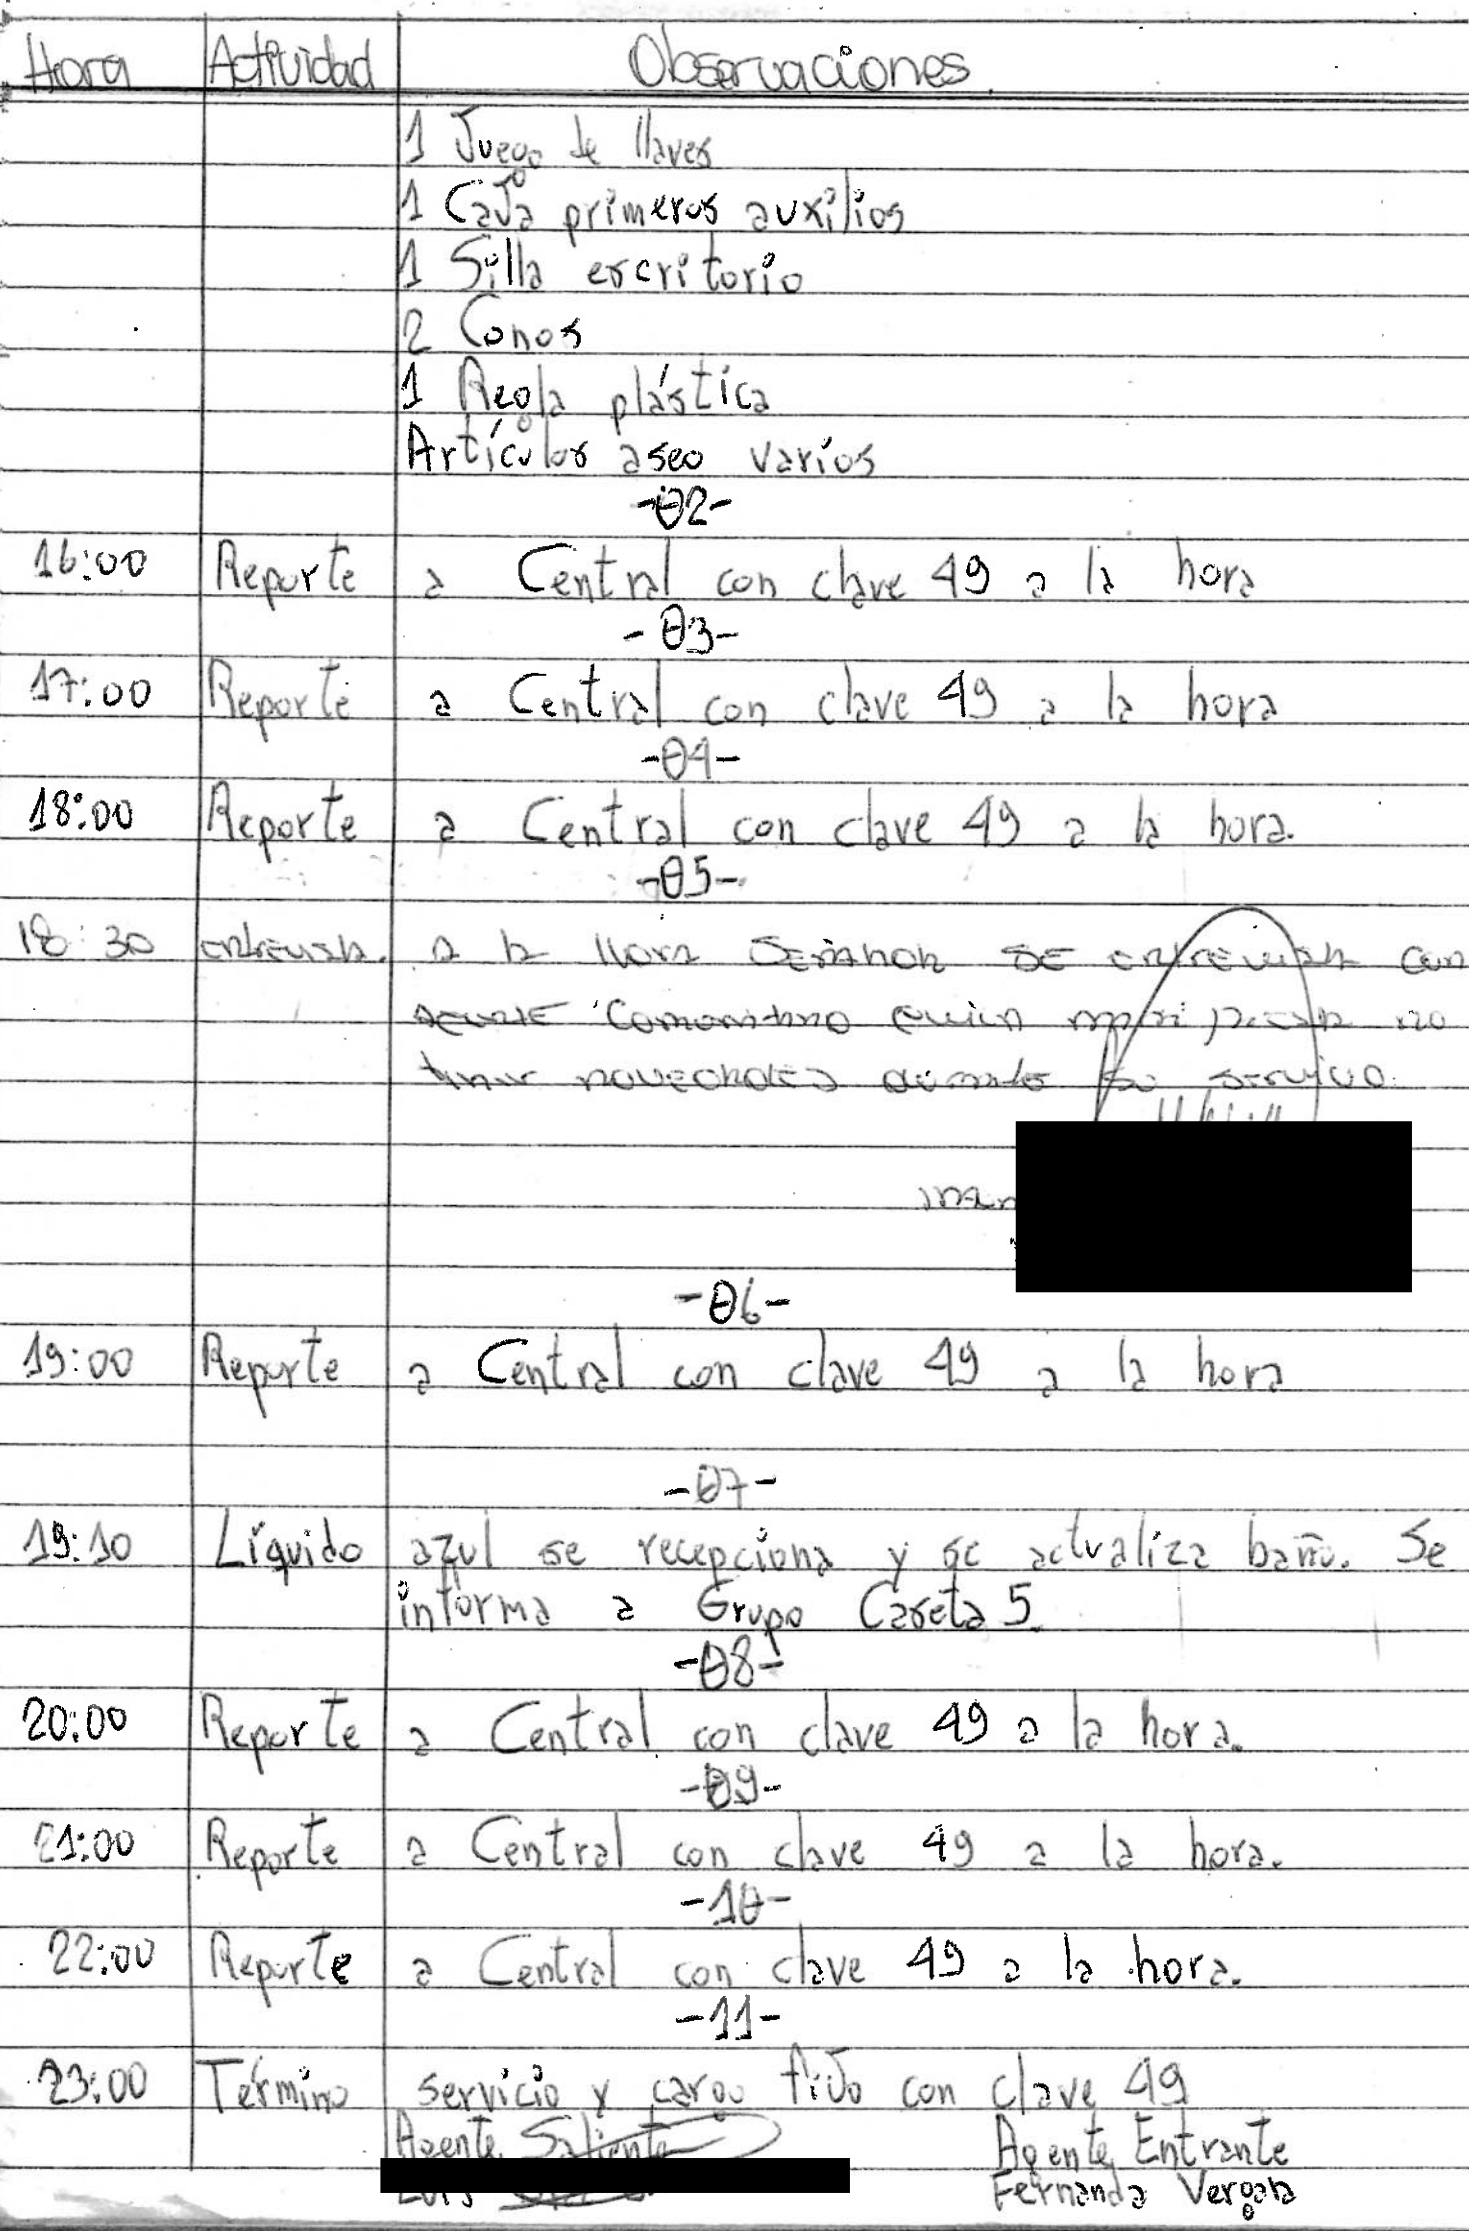 Hora Actividad Observaciones
1 Juego de llaves
1 Caja primeros auxilios
1 Silla escritorio
2 Conos
1 Regla plástica
Artículos aseo varios
-02-
16:00 Reporte a Central con clave 49 a la hora
-03-
17:00 Reporte a Central con clave 49 a la hora
-04-
18:00 Reporte a Central con clave 49 a la hora.
-05-
18:30 entrevista. a la hora señalada se entrevista con
quien no
tener novedades durante su servicio.
-06-
19:00 Reporte a Central con clave 49 a la hora
-07-
19:10 Líquido azul se recepciona y se actualiza baño. Se
informa a Grupo Caseta 5.
-08-
20:00 Reporte a Central con clave 49 a la hora.
-09-
21:00 Reporte a Central con clave 49 a la hora.
-10-
22:00 Reporte a Central con clave 49 a la hora.
-11-
23:00 Término servicio y cargo fijo con clave 49
Agente Saliente Agente Entrante
Fernanda Vergara